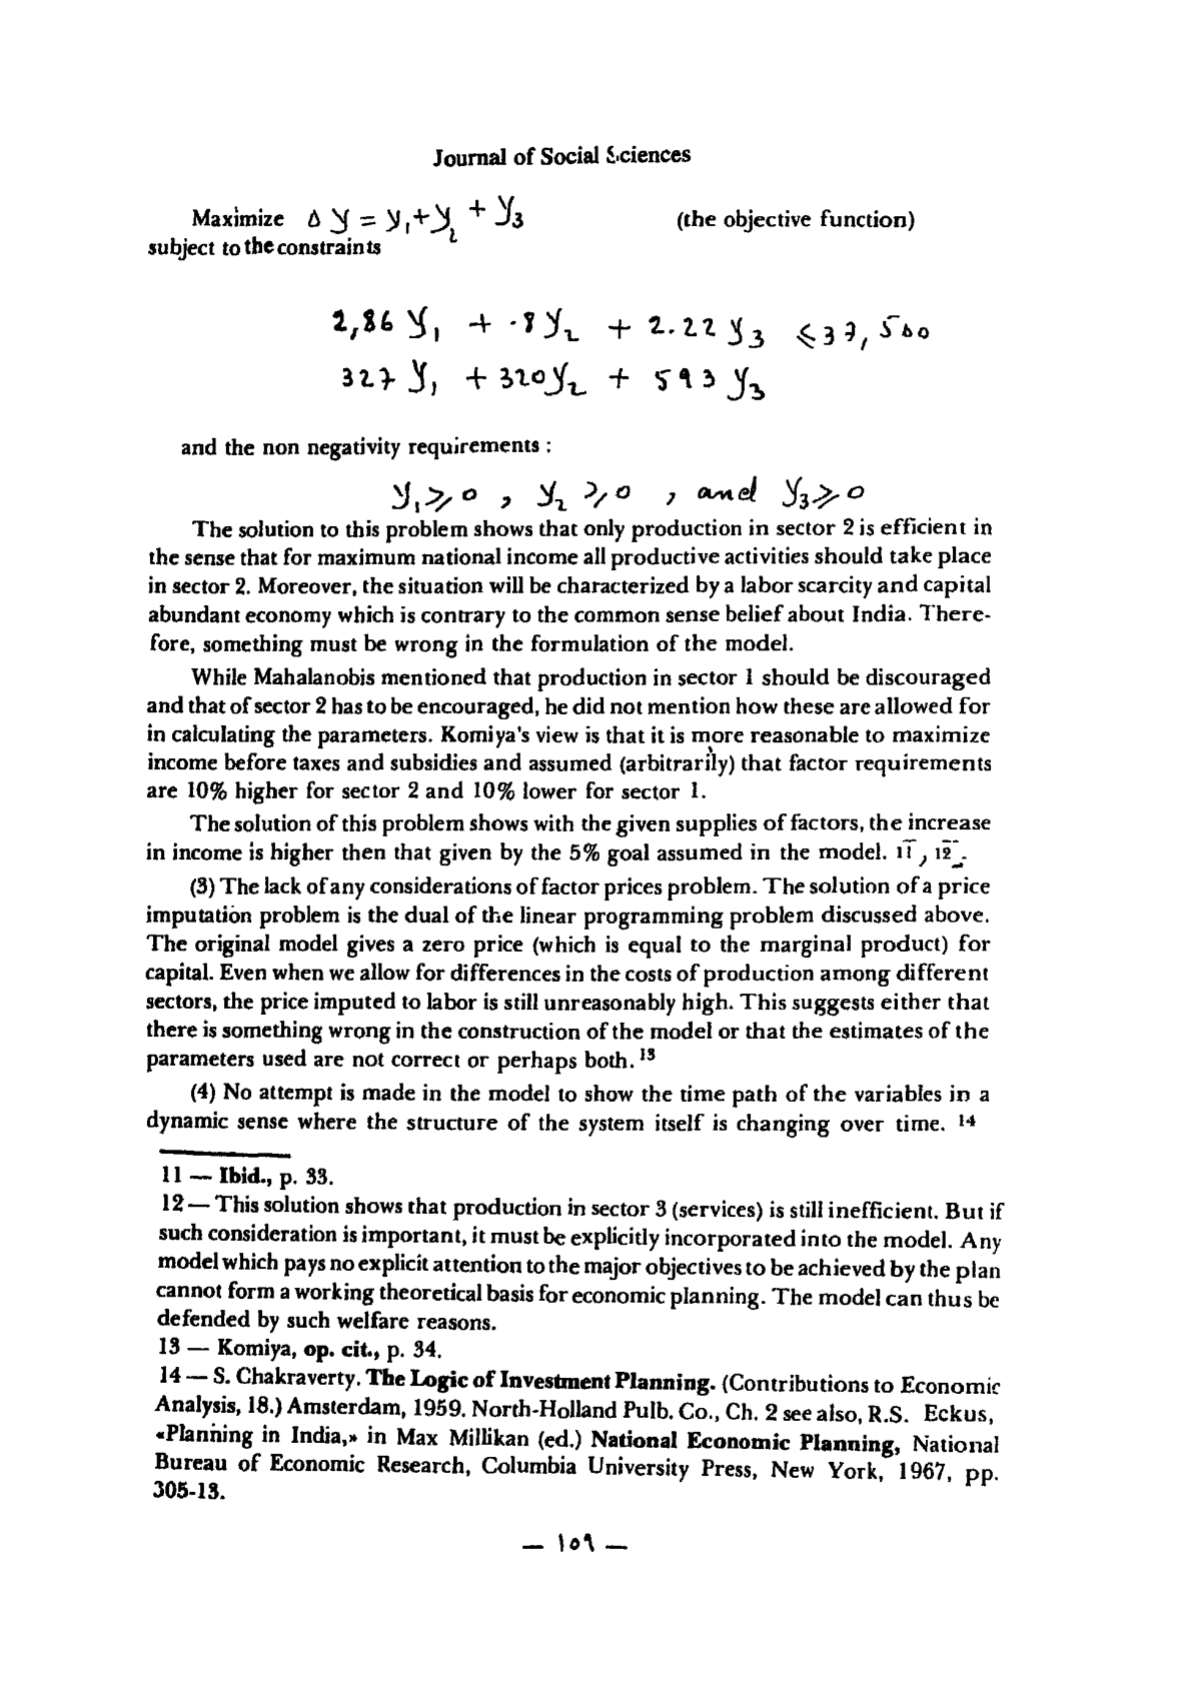 Journal of Social Sciences
Maximize Δ y = y₁+y₂ + y₃ (the objective function)
subject to the constraints
2,86 y₁ + .8 y₂ + 2.22 y₃ ⩽ 37,500
327 y₁ + 320 y₂ + 593 y₃
and the non negativity requirements :
y₁ ⩾ 0 , y₂ ⩾ 0 , and y₃ ⩾ 0
The solution to this problem shows that only production in sector 2 is efficient in
the sense that for maximum national income all productive activities should take place
in sector 2. Moreover, the situation will be characterized by a labor scarcity and capital
abundant economy which is contrary to the common sense belief about India. There-
fore, something must be wrong in the formulation of the model.
While Mahalanobis mentioned that production in sector 1 should be discouraged
and that of sector 2 has to be encouraged, he did not mention how these are allowed for
in calculating the parameters. Komiya's view is that it is more reasonable to maximize
income before taxes and subsidies and assumed (arbitrarily) that factor requirements
are 10% higher for sector 2 and 10% lower for sector 1.
The solution of this problem shows with the given supplies of factors, the increase
in income is higher then that given by the 5% goal assumed in the model. 11 , 12 .
(3) The lack of any considerations of factor prices problem. The solution of a price
imputation problem is the dual of the linear programming problem discussed above.
The original model gives a zero price (which is equal to the marginal product) for
capital. Even when we allow for differences in the costs of production among different
sectors, the price imputed to labor is still unreasonably high. This suggests either that
there is something wrong in the construction of the model or that the estimates of the
parameters used are not correct or perhaps both. 13
(4) No attempt is made in the model to show the time path of the variables in a
dynamic sense where the structure of the system itself is changing over time. 14
11 — Ibid., p. 33.
12 — This solution shows that production in sector 3 (services) is still inefficient. But if
such consideration is important, it must be explicitly incorporated into the model. Any
model which pays no explicit attention to the major objectives to be achieved by the plan
cannot form a working theoretical basis for economic planning. The model can thus be
defended by such welfare reasons.
13 — Komiya, op. cit., p. 34.
14 — S. Chakraverty. The Logic of Investment Planning. (Contributions to Economic
Analysis, 18.) Amsterdam, 1959. North-Holland Pulb. Co., Ch. 2 see also, R.S. Eckus,
«Planning in India,» in Max Millikan (ed.) National Economic Planning, National
Bureau of Economic Research, Columbia University Press, New York, 1967, pp.
305-13.
— ١٥٩ —